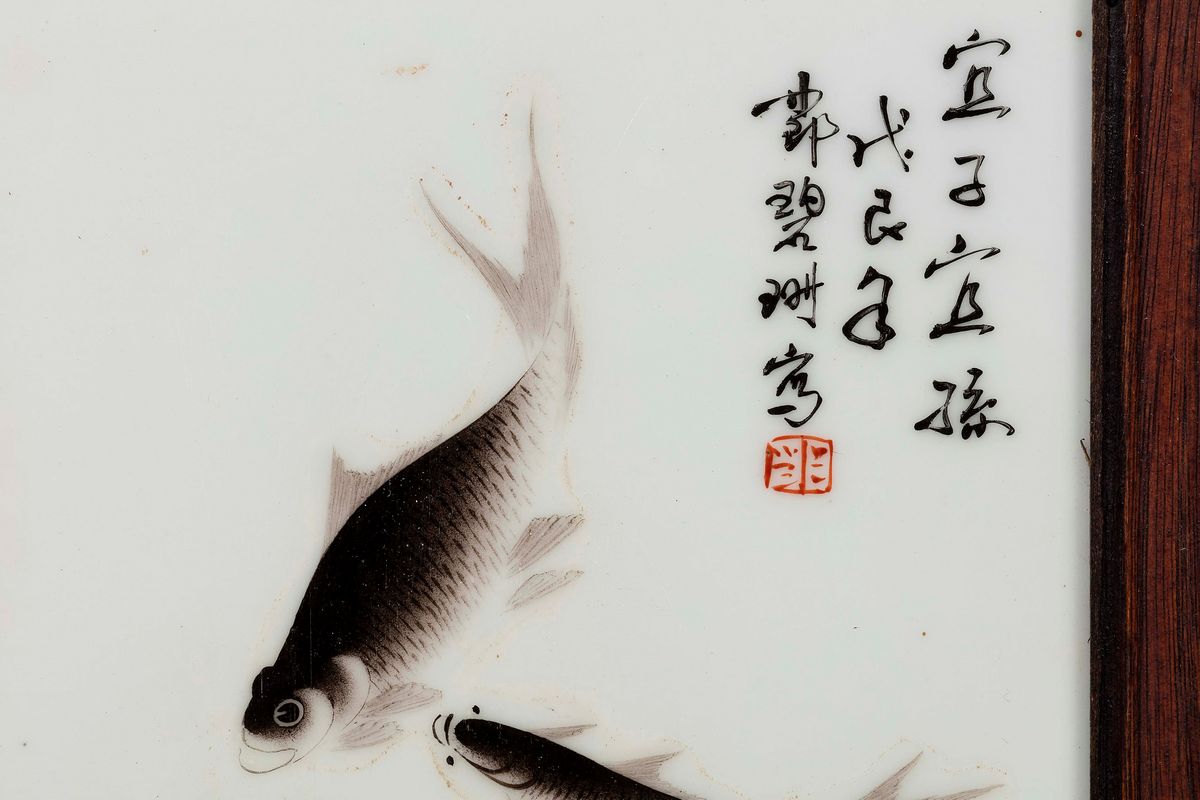 宜子宜孫
戊辰年
鄧碧珊寫